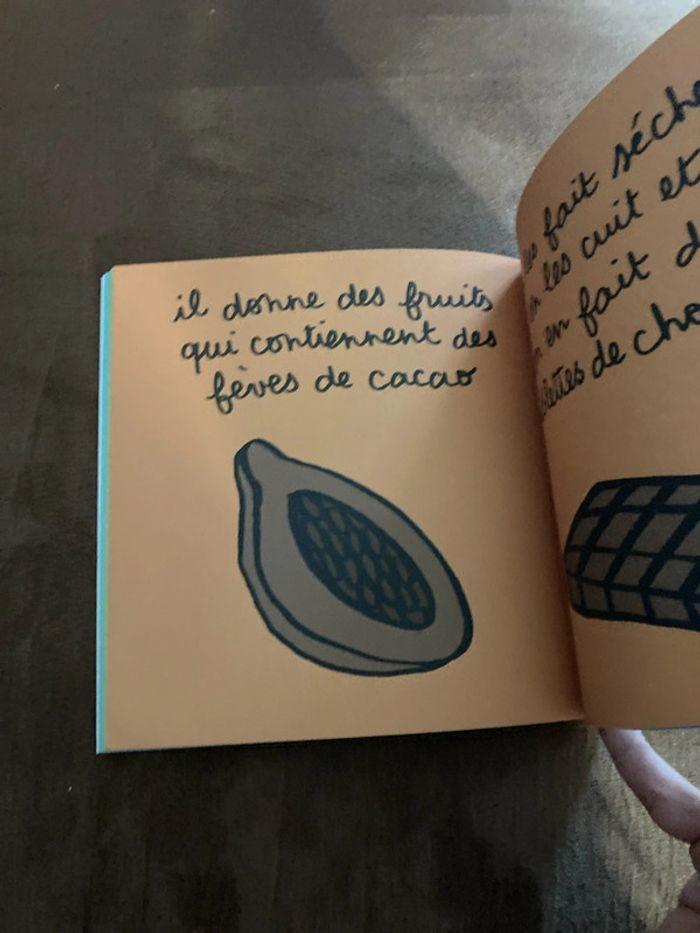 il donne des fruits
qui contiennent des
fèves de cacao
fait
les cuit et
en fait
de